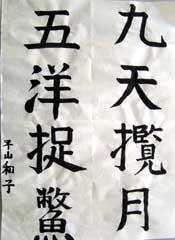 九天攬月
五洋捉鱉
平山和子